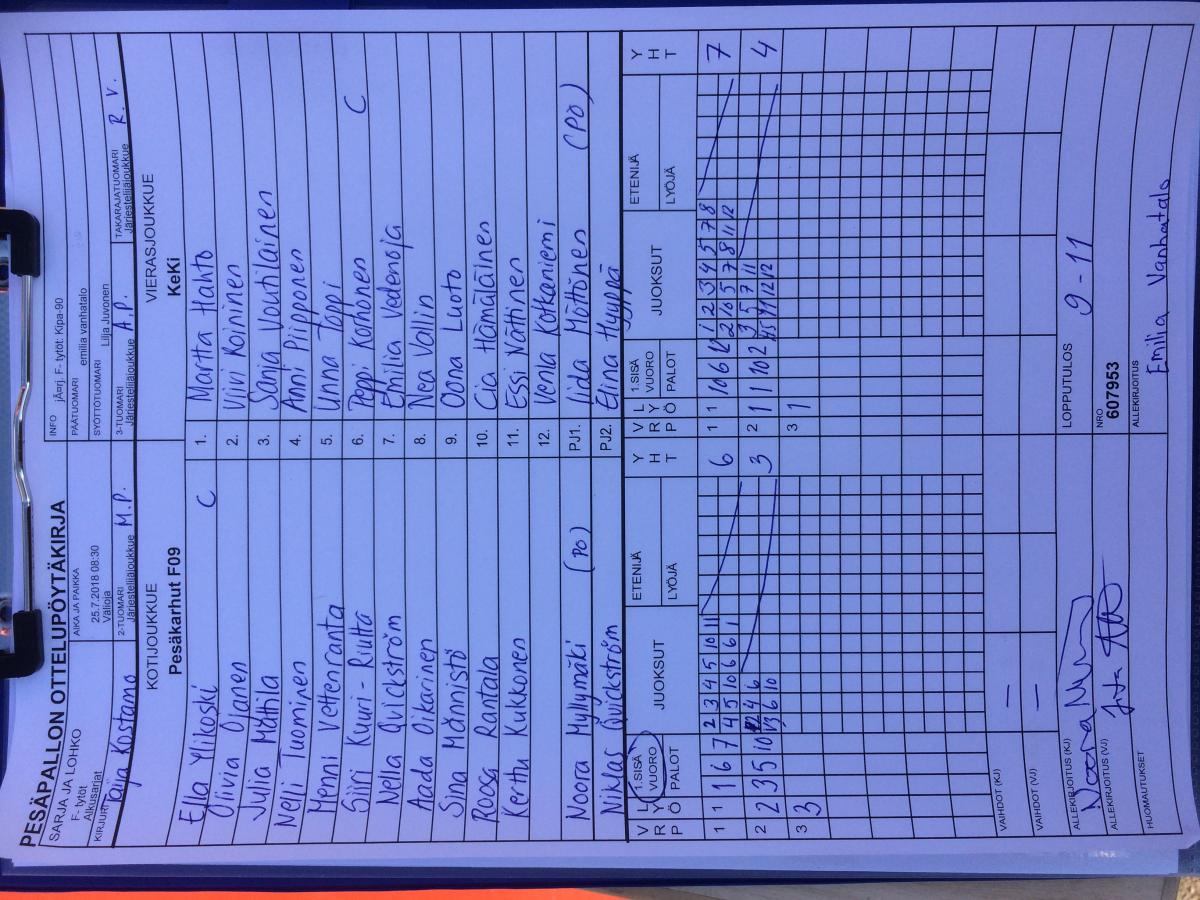 PESÄPALLON OTTELUPÖYTÄKIRJA
SARJA JA LOHKO
F- tytöt
Alkusarjat
AIKA JA PAIKKA
25.7.2018 08:30
Välioja
INFO jÃ¤rj. F- tytöt: Kipa-90
PÄÄTUOMARI emilia vanhatalo
SYÖTTÖTUOMARI Lilja Juvonen
KIRJURI Tarja Kostamo
2-TUOMARI Järjestelijäjoukkue M.P.
3-TUOMARI Järjestelijäjoukkue A.P.
TAKARAJATUOMARI Järjestelijäjoukkue R.V.
KOTIJOUKKUE VIERASJOUKKUE
Pesäkarhut F09 KeKi
Ella Ylikoski C 1. Martta Hahto
Olivia Ojanen 2. Viivi Roininen
Julia Mättila 3. Sanja Voutilainen
Nelli Tuominen 4. Anni Piipponen
Henni Vettenranta 5. Unna Toppi
Siiri Kuuri-Riutta 6. Peppi Korhonen C
Nella Quickström 7. Emilia Vedenoja
Aada Oikarinen 8. Nea Vallin
Sina Männistö 9. Oona Luoto
Roosa Rantala 10. Cia Hämäläinen
Kerttu Kukkonen 11. Essi Nättinen
12. Venla Kotkaniemi
Noora Myllymäki (PO) PJ1. Iida Möttönen (PO)
Niklas Quickström PJ2. Elina Hyyppä
V R P L Y Ö 1.SISÄ VUORO PALOT JUOKSUT ETENIJÄ LYÖJÄ Y H T V R P L Y Ö 1.SISÄ VUORO PALOT JUOKSUT ETENIJÄ LYÖJÄ Y H T
1 1 6 7 2 3 4 5 10 11 6 1 1 10 6 12 1 2 3 4 5 7 8 7
4 5 10 6 6 1 2 10 5 7 8 11 12
2 2 3 5 10 4 6 3 2 1 10 2 3 5 7 11 4
6 10
3 3 3 1
VAIHDOT (KJ) —
VAIHDOT (VJ) —
ALLEKIRJOITUS (KJ)
LOPPUTULOS 9 - 11
ALLEKIRJOITUS (VJ)
NRO
607953
HUOMAUTUKSET
ALLEKIRJOITUS
Emilia Vanhatalo